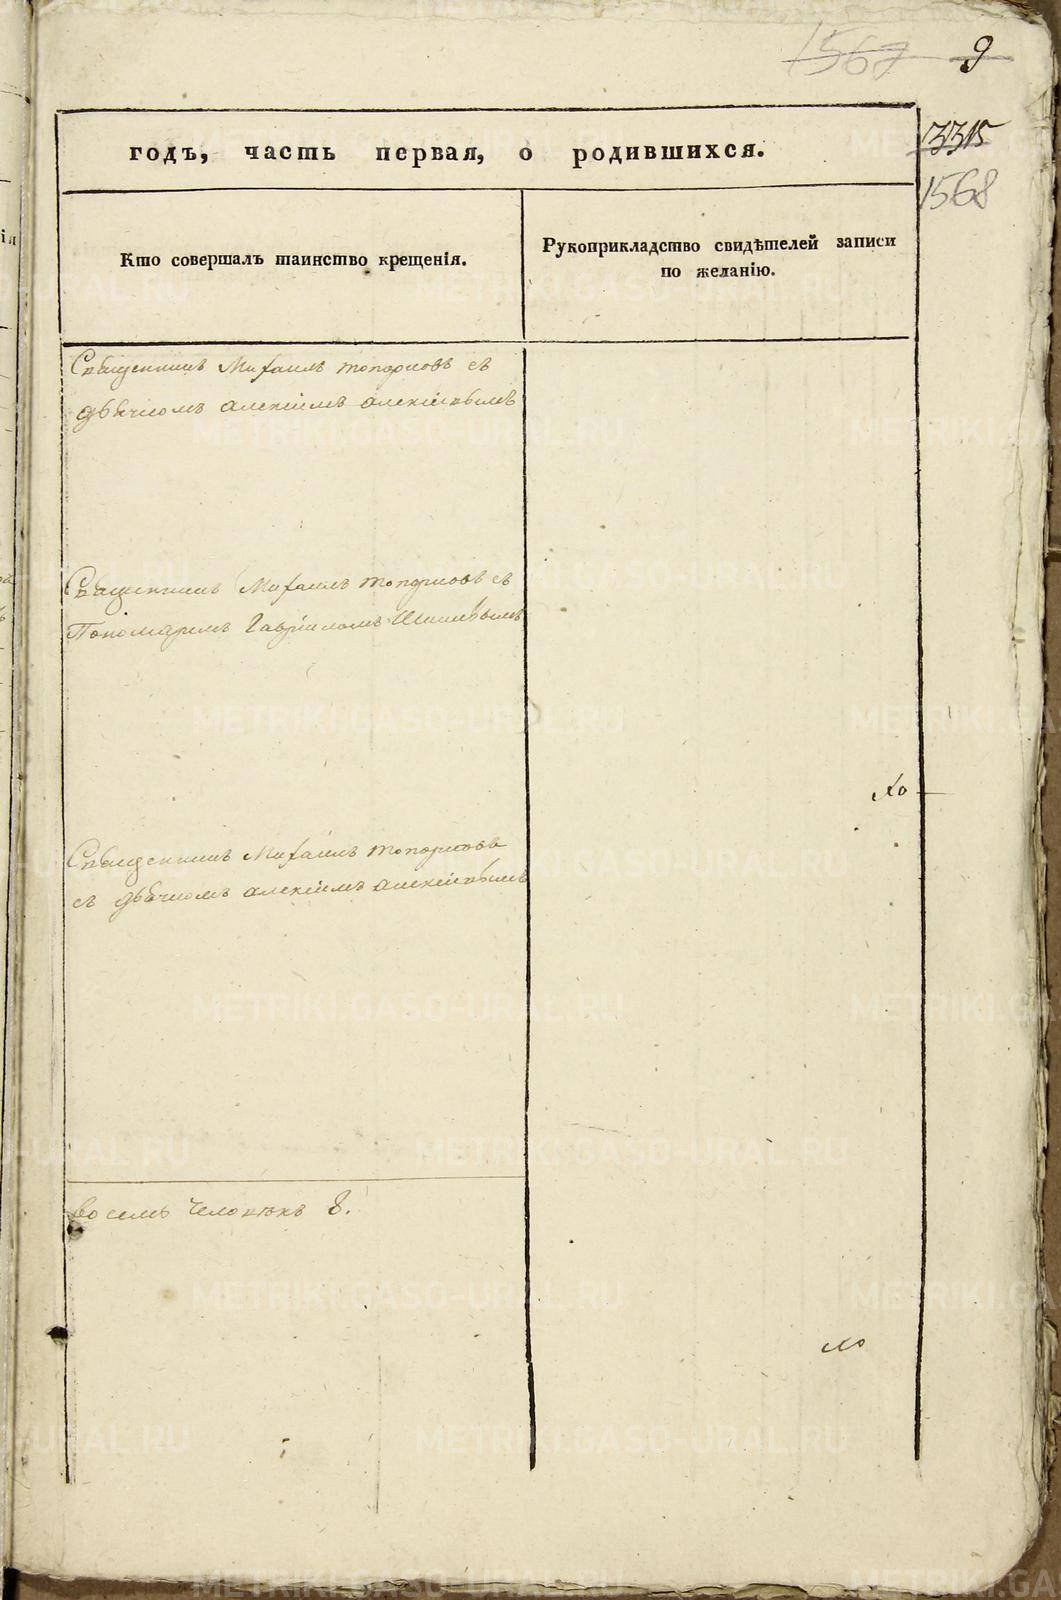 1567 9
3315
1568
годъ, часть первая, о родившихся.
Кто совершалъ таинство крещенія.
Рукоприкладство свидѣтелей записи
по желанію.
Священникъ Михаилъ Топорковъ съ
дьячкомъ Алексіемъ Алексіевымъ
Священникъ Михаилъ Топорковъ съ
Пономаремъ Гавріиломъ
Священникъ Михаилъ Топорковъ
съ дьячкомъ Алексіемъ Алексіевымъ
восемь человѣкъ 8.
METRIKI.GASO-URAL.RU